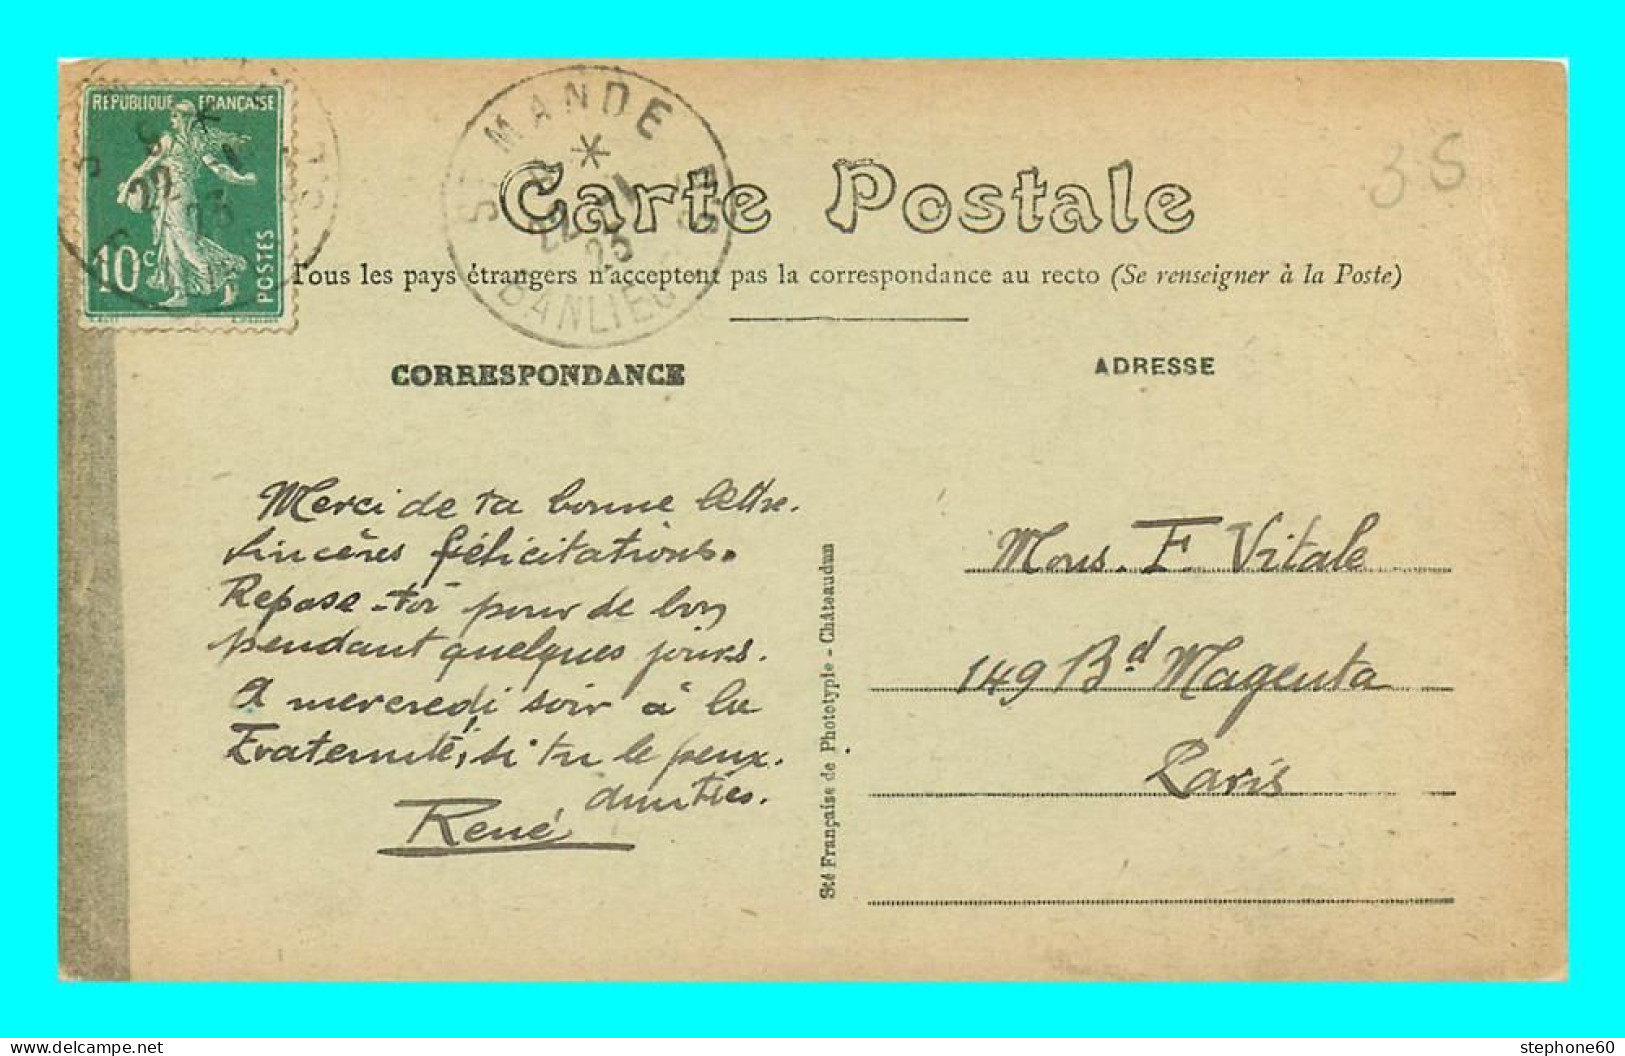 REPUBLIQUE FRANÇAISE
10c
POSTES
ST MANDE
22 1
23
BANLIEUE
Carte Postale
35
Tous les pays étrangers n'acceptent pas la correspondance au recto (Se renseigner à la Poste)
CORRESPONDANCE
Merci de ta bonne lettre.
Sincères félicitations.
Repose-toi pour de bon
pendant quelques jours.
A mercredi soir à la
Fraternité, si tu le peux.
amitiés.
René
Sté Française de Phototypie - Châteaudun
ADRESSE
Mons. F. Vitale
149 Bd Magenta
Paris
stephone60